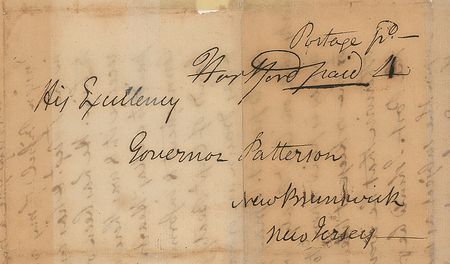 Postage pd —
Hartford paid 4
His Excellency
Governor Patterson
New Brunswick
New Jersey —